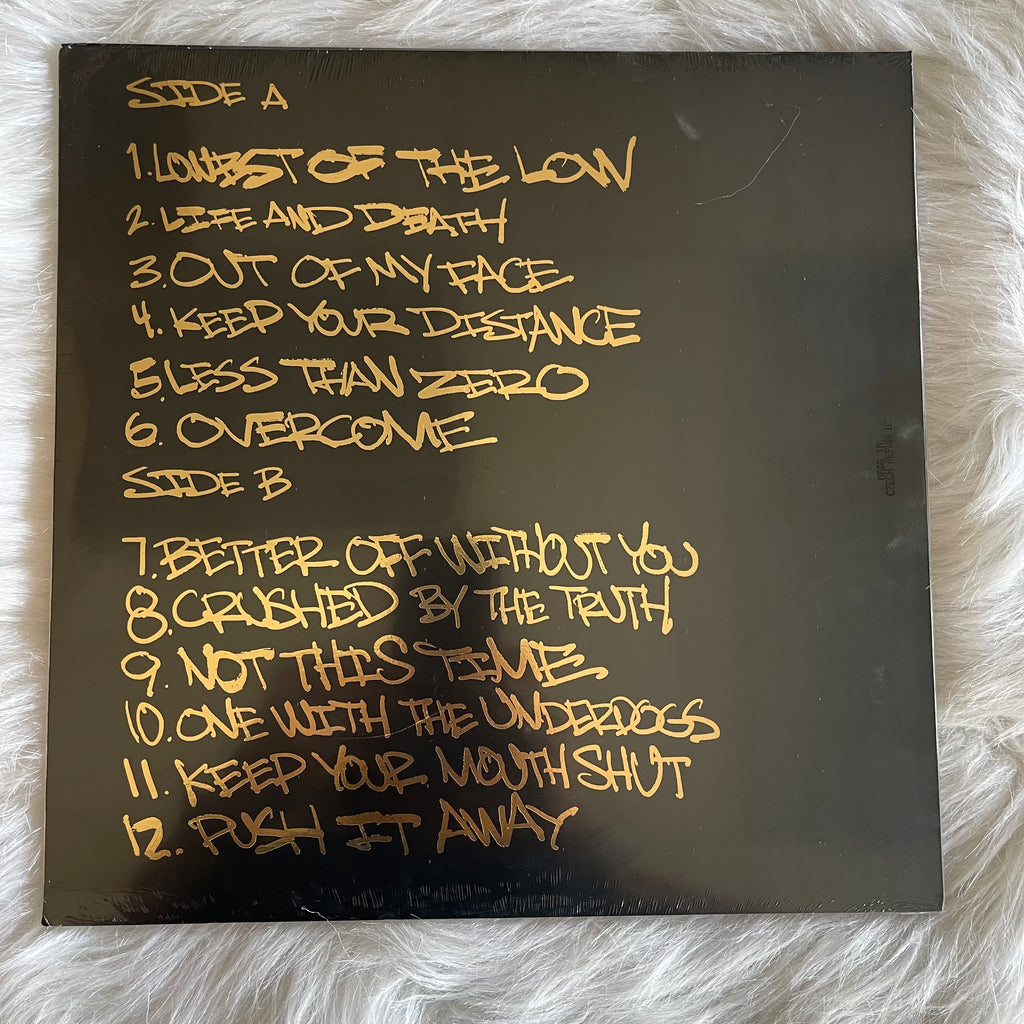 SIDE A
1. LOWEST OF THE LOW
2. LIFE AND DEATH
3. OUT OF MY FACE
4. KEEP YOUR DISTANCE
5. LESS THAN ZERO
6. OVERCOME
SIDE B
7. BETTER OFF WITHOUT YOU
8. CRUSHED BY THE TRUTH
9. NOT THIS TIME
10. ONE WITH THE UNDERDOGS
11. KEEP YOUR MOUTH SHUT
12. PUSH IT AWAY
MADE IN
CZECH REPUBLIC